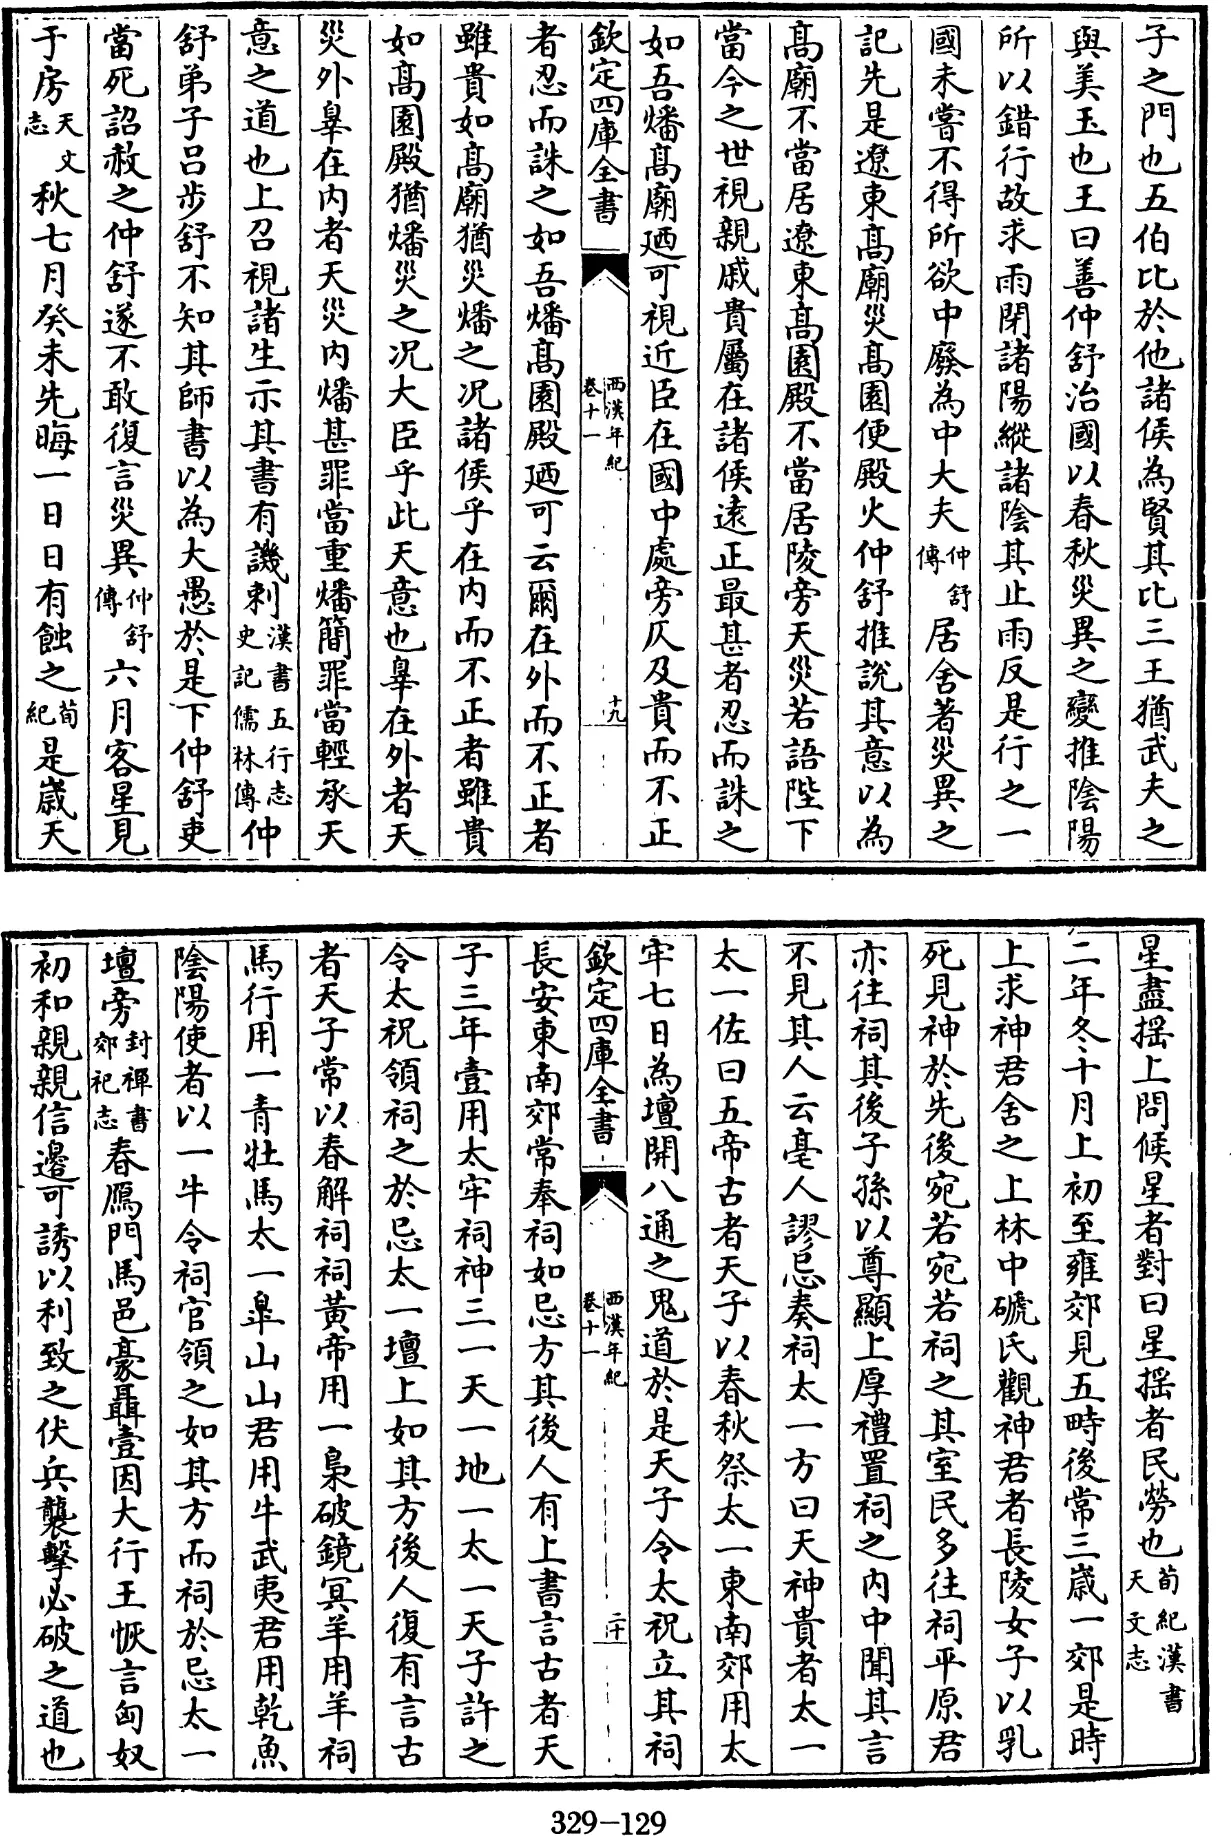 子之門也五伯比於他諸侯為賢其比三王猶武夫之
與美玉也王曰善仲舒治國以春秋災異之變推陰陽
所以錯行故求雨閉諸陽縱諸陰其止雨反是行之一
國未嘗不得所欲中廢為中大夫仲舒傳居舍著災異之
記先是遼東高廟災高園便殿火仲舒推說其意以為
高廟不當居遼東高園殿不當居陵旁天災若語陛下
當今之世視親戚貴屬在諸侯遠正最甚者忍而誅之
如吾燔高廟廼可視近臣在國中處旁仄及貴而不正
欽定四庫全書 西漢年紀卷十一 十九
者忍而誅之如吾燔高園殿廼可云爾在外而不正者
雖貴如高廟猶災燔之况諸侯乎在内而不正者雖貴
如高園殿猶燔災之况大臣乎此天意也辠在外者天
災外辠在内者天災内燔甚罪當重燔簡罪當輕承天
意之道也上召視諸生示其書有譏刺漢書五行志史記儒林傳仲
舒弟子吕步舒不知其師書以為大愚於是下仲舒吏
當死詔赦之仲舒遂不敢復言災異仲舒傳六月客星見
于房天文志秋七月癸未先晦一日日有蝕之荀紀是嵗天
星盡揺上問候星者對曰星揺者民勞也荀紀漢書天文志
二年冬十月上初至雍郊見五畤後常三嵗一郊是時
上求神君舍之上林中磃氏觀神君者長陵女子以乳
死見神於先後宛若宛若祠之其室民多往祠平原君
亦往祠其後子孫以尊顯上厚禮置祠之内中聞其言
不見其人云亳人謬忌奏祠太一方曰天神貴者太一
太一佐曰五帝古者天子以春秋祭太一東南郊用太
牢七日為壇開八通之鬼道於是天子令太祝立其祠
欽定四庫全書 西漢年紀卷十一 二十
長安東南郊常奉祠如忌方其後人有上書言古者天
子三年壹用太牢祠神三一天一地一太一天子許之
令太祝領祠之於忌太一壇上如其方後人復有言古
者天子常以春解祠祠黃帝用一梟破鏡冥羊用羊祠
馬行用一青牡馬太一皐山山君用牛武夷君用乾魚
陰陽使者以一牛令祠官領之如其方而祠於忌太一
壇旁封禪書郊祀志春鴈門馬邑豪聶壹因大行王恢言匈奴
初和親親信邊可誘以利致之伏兵襲擊必破之道也
329-129